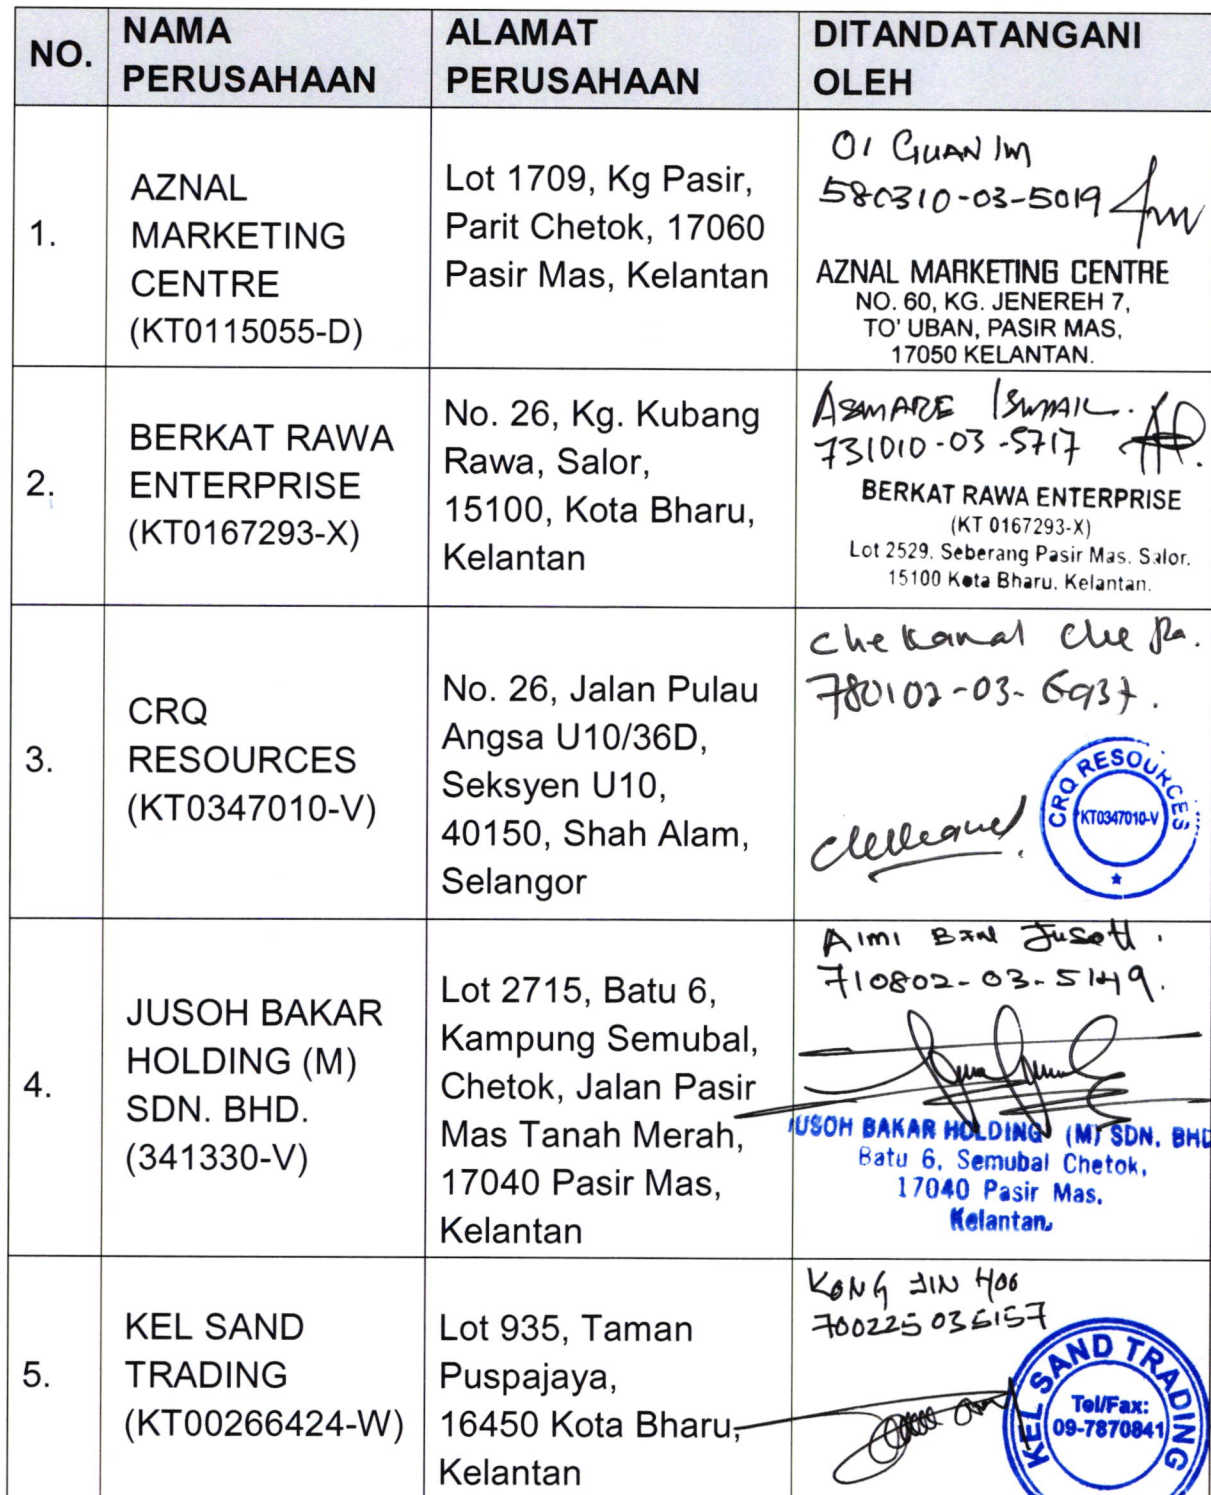 NO.
NAMA
PERUSAHAAN
ALAMAT
PERUSAHAAN
DITANDATANGANI
OLEH
1.
AZNAL
MARKETING
CENTRE
(KT0115055-D)
Lot 1709, Kg Pasir,
Parit Chetok, 17060
Pasir Mas, Kelantan
OI GUAN IM
580310-03-5019
AZNAL MARKETING CENTRE
NO. 60, KG. JENEREH 7,
TO' UBAN, PASIR MAS,
17050 KELANTAN.
2.
BERKAT RAWA
ENTERPRISE
(KT0167293-X)
No. 26, Kg. Kubang
Rawa, Salor,
15100, Kota Bharu,
Kelantan
ASMARE ISMAIL.
731010-03-5717
BERKAT RAWA ENTERPRISE
(KT 0167293-X)
Lot 2529, Seberang Pasir Mas, Salor.
15100 Kota Bharu, Kelantan.
3.
CRQ
RESOURCES
(KT0347010-V)
No. 26, Jalan Pulau
Angsa U10/36D,
Seksyen U10,
40150, Shah Alam,
Selangor
Che Kamal Che
780102-03-6937.
CRQ RESOURCES
KT0347010-V
4.
JUSOH BAKAR
HOLDING (M)
SDN. BHD.
(341330-V)
Lot 2715, Batu 6,
Kampung Semubal,
Chetok, Jalan Pasir
Mas Tanah Merah,
17040 Pasir Mas,
Kelantan
AIMI BIN JUSOH.
710802-03-5149.
JUSOH BAKAR HOLDING (M) SDN. BHD
Batu 6, Semubal Chetok,
17040 Pasir Mas,
Kelantan.
5.
KEL SAND
TRADING
(KT00266424-W)
Lot 935, Taman
Puspajaya,
16450 Kota Bharu,
Kelantan
KONG JIN HOO
700225035157
KEL SAND TRADING
Tel/Fax:
09-7870841